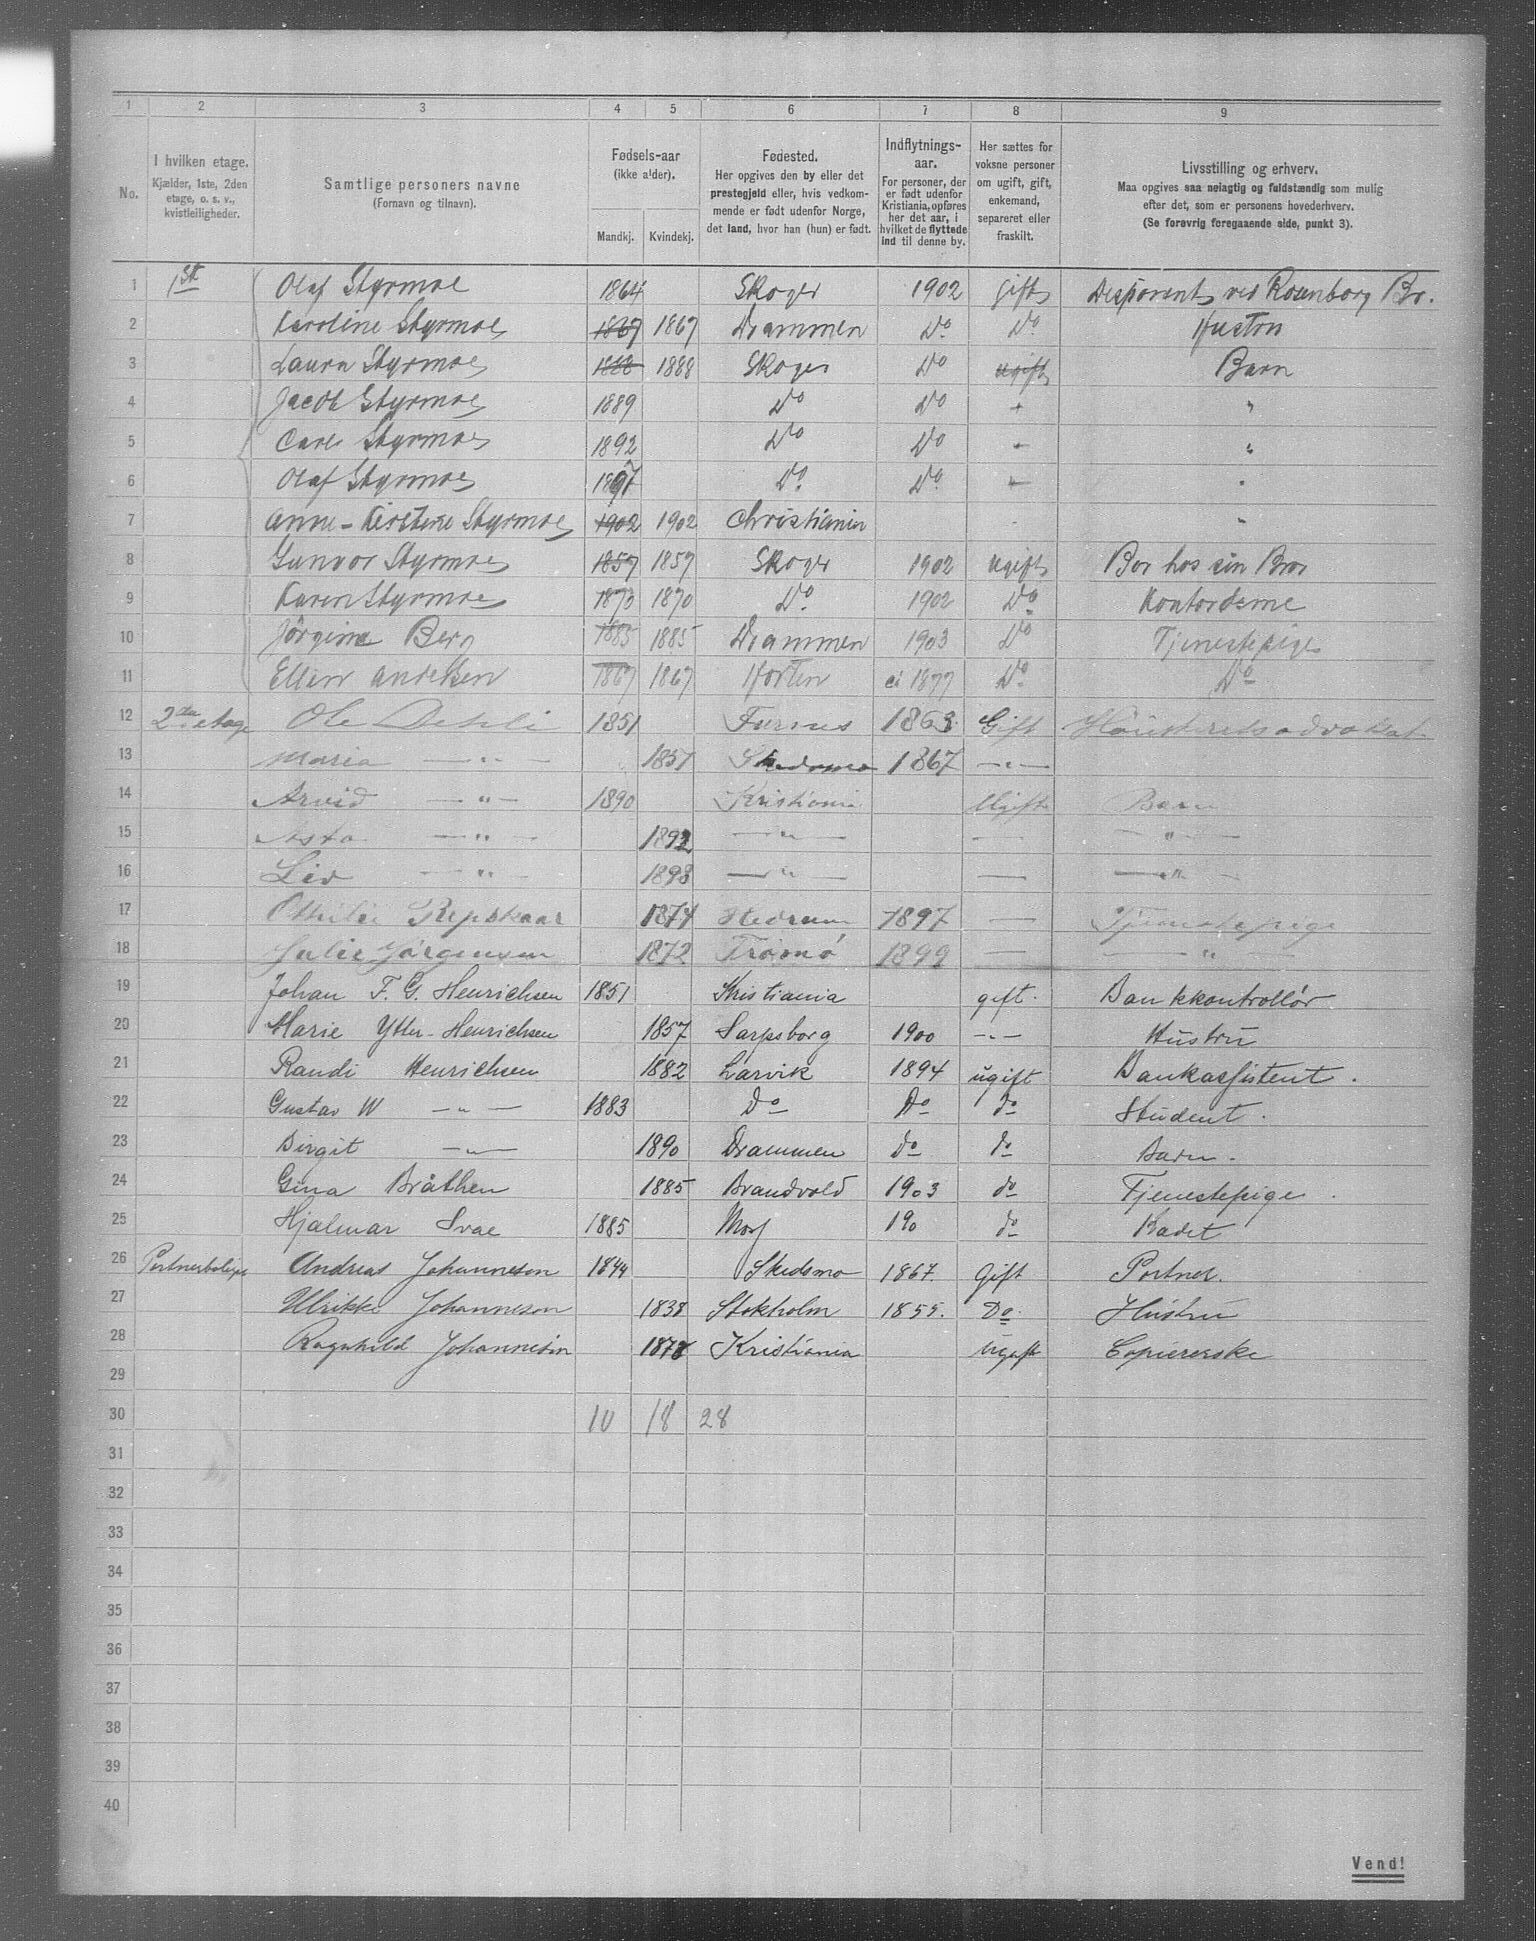 1 2 3 4 5 6 7 8 9
No.
I hvilken etage.
Kjælder, 1ste, 2den
etage, o. s. v.,
kvistleiligheder.
Samtlige personers navne
(Fornavn og tilnavn).
Fødsels-aar
(ikke alder).
Mandkj. Kvindekj.
Fødested.
Her opgives den by eller det
prestegjeld eller, hvis vedkom-
mende er født udenfor Norge,
det land, hvor han (hun) er født.
Indflytnings-
aar.
For personer, der
er født udenfor
Kristiania, opføres
her det aar, i
hvilket de flyttede
ind til denne by.
Her sættes for
voksne personer
om ugift, gift,
enkemand,
separeret eller
fraskilt.
Livsstilling og erhverv.
Maa opgives saa nøiagtig og fuldstændig som mulig
efter det, som er personens hovederhverv.
(Se forøvrig foregaaende side, punkt 3).
1 1st Olaf Styrmoe 1864 Skoger 1902 gift Disponent ved Rosenborg Br.
2 Karoline Styrmoe 1867 1867 Drammen Do Do Hustru
3 Laura Styrmoe 1888 1888 Skoger Do ugift Barn
4 Jacob Styrmoe 1889 Do Do "
5 Carl Styrmoe 1892 Do Do "
6 Olaf Styrmoe 1897 Do Do "
7 Anne-Kirstine Styrmoe 1902 1902 Christiania "
8 Gunvor Styrmoe 1857 1857 Skoger 1902 ugift Bor hos sin Bror
9 Karen Styrmoe 1870 1870 Do 1902 Do Kontordame
10 Jörgine Berg 1885 1885 Drammen 1903 Do Tjenestepige
11 Ellen Andersen 1867 1867 Horten 1877 Do Do
12 2den etage Ole Dehli 1851 Furnes 1863 Gift Höiesteretsadvokat
13 Maria — " — 1857 Skedsmo 1867 — " —
14 Arvid — " — 1890 Kristiania Ugift Barn
15 Asta — " — 1892 — " — — — " —
16 Liv — " — 1893 — " — — — " —
17 Othilie Ripskaar 1874 Hedrum 1897 — Tjenestepige
18 Julie Jörgensen 1872 Tromö 1899 — — " —
19 Johan F. G. Henrichsen 1851 Kristiania gift. Bankkontrollör
20 Marie Ytter-Henrichsen 1857 Sarpsborg 1900 — " — Hustru
21 Randi Henrichsen 1882 Larvik 1894 ugift Bankassistent.
22 Gustav W — " — 1883 Do Do do Student.
23 Birgit — " — 1890 Drammen do do Barn.
24 Gina Bråthen 1885 Brandvold 1903 do Tjenestepige.
25 Hjalmar Svae 1885 Moss 190 do Kadet
26 Portnerbolige Andreas Johanneson 1844 Skedsmo 1867. Gift Portner.
27 Ulrikke Johanneson 1838 Stokholm 1855. Do Hustru
28 Ragnhild Johanneson 1878 Kristiania Ugift Copiererske
29
30 10 18 28
31
32
33
34
35
36
37
38
39
40
Vend!